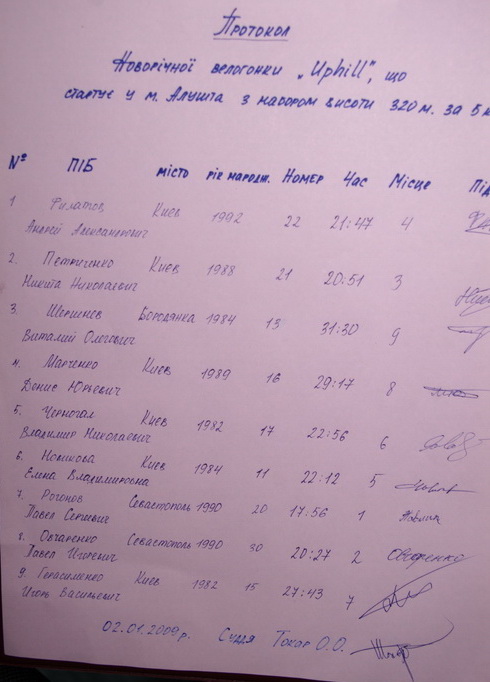 Протокол
Новорічної велогонки „Uphill", що
стартує у м. Алушта з набором висоти 320 м. за 5 к
№ ПІБ місто рік народж. Номер Час Місце Під
1 Филатов Киев 1992 22 21:47 4
Андрей Александрович
2. Петриченко Киев 1988 21 20:51 3
Никита Николаевич
3. Шершнев Бородянка 1984 13 31:30 9
Виталий Олегович
4. Марченко Киев 1989 16 29:17 8
Денис Юрьевич
5. Черногал Киев 1982 17 22:56 6
Владимир Николаевич
6. Новикова Киев 1984 11 22:12 5
Елена Владимировна
7. Рогонов Севастополь 1990 20 17:56 1
Павел Сергиевич
8. Овчаренко Севастополь 1990 30 20:27 2
Павел Игоревич
9. Герасименко Киев 1982 15 27:43 7
Игорь Васильевич
02.01.2009 р. Суддя Токар О.О.